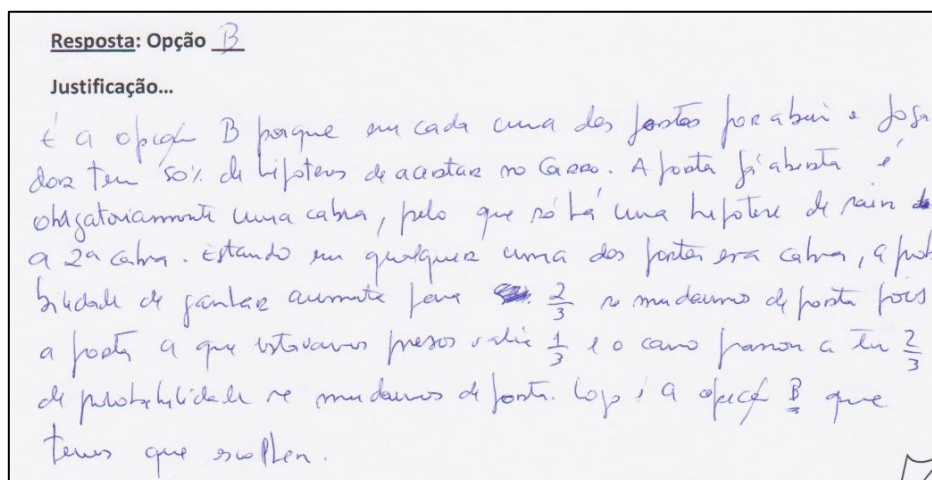 Resposta: Opção B
Justificação...
É a opção B porque em cada uma das portas por abrir o joga
dor tem 50% de hipóteses de acertar no carro. A porta já aberta é
obrigatoriamente uma cabra, pelo que só há uma hipótese de sair
a 2ª cabra. Estando em qualquer uma das portas essa cabra, a prob
bilidade de ganhar aumenta para 2/3 se mudarmos de porta pois
a porta a que estávamos presos valia 1/3 e o carro passou a ter 2/3
de probabilidade se mudarmos de porta. Logo é a opção B que
temos que escolher.